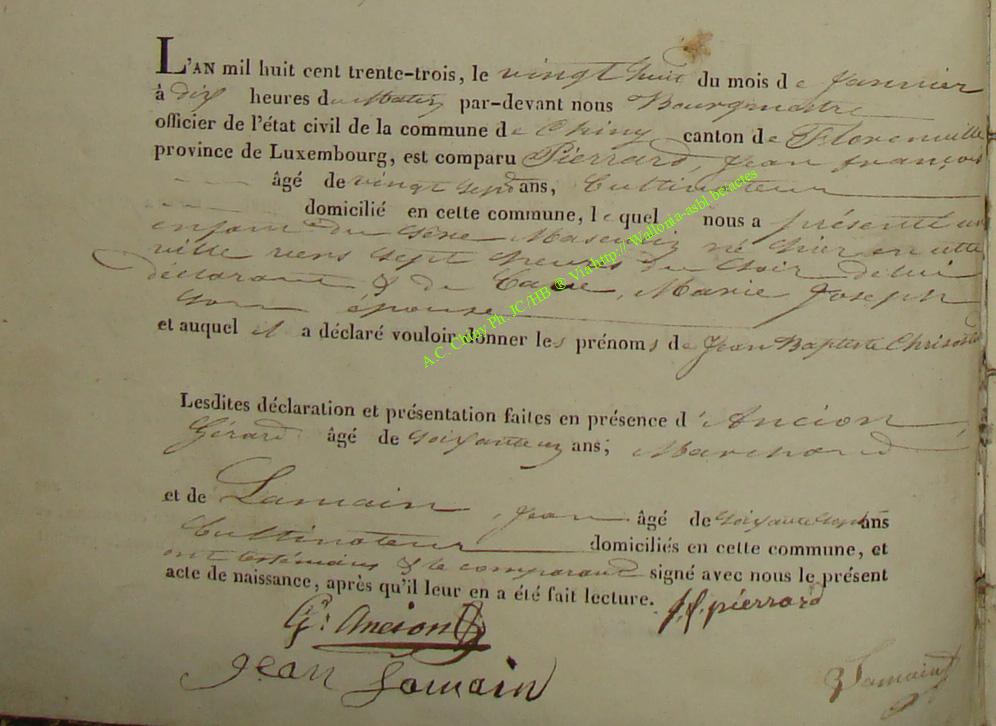 L'AN mil huit cent trente-trois, le vingt huit du mois de Janvier
à dix heures du Matin par-devant nous Bourgmestre
officier de l'état civil de la commune de Chiny canton de Florenville
province de Luxembourg, est comparu Pierrard, Jean françois
âgé de vingt sept ans, Cultivateur
domicilié en cette commune, lequel nous a présenté un
enfant du Sexe Masculin né hier en cette
ville vers sept heures du Soir de lui
déclarant & de Marie Joseph
Son épouse
et auquel il a déclaré vouloir donner les prénoms de Jean Baptiste
Lesdites déclaration et présentation faites en présence d'Ancion,
Gérard âgé de ans; Marchand
et de Lamain, Jean âgé de Soixante Sept ans
Cultivateur domiciliés en cette commune, et
ont les témoins & le comparant signé avec nous le présent
acte de naissance, après qu'il leur en a été fait lecture. J. f. piérrard
G: Ancion
Jean Lamain
Lamain
A.C. Chiny Ph. JC/HB ® Via http://Wallonia-asbl.be/actes